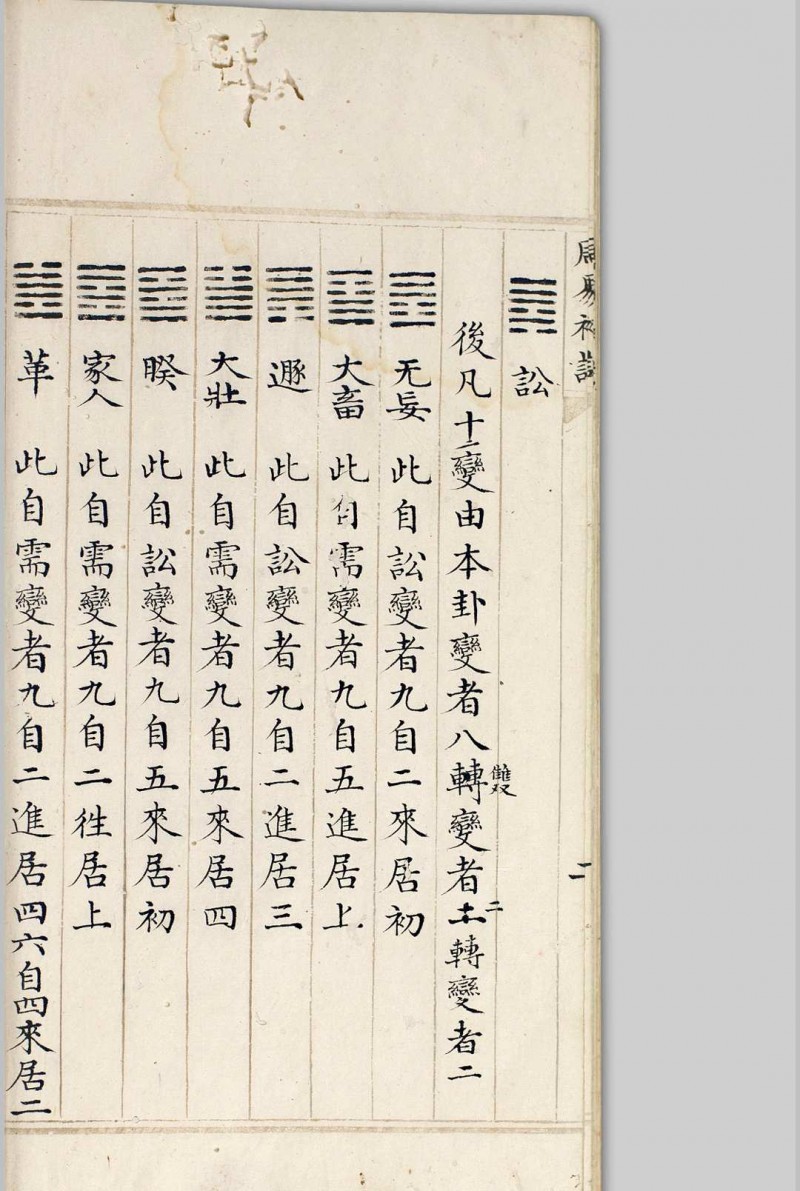 訟
後凡十二變由本卦變者八轉變者十二轉變者二
雙
无妄 此自訟變者九自二來居初
大畜 此自需變者九自五進居上
遯 此自訟變者九自二進居三
大壯 此自需變者九自五來居四
睽 此自訟變者九自五來居初
家人 此自需變者九自二往居上
革 此自需變者九自二進居四六自四來居二